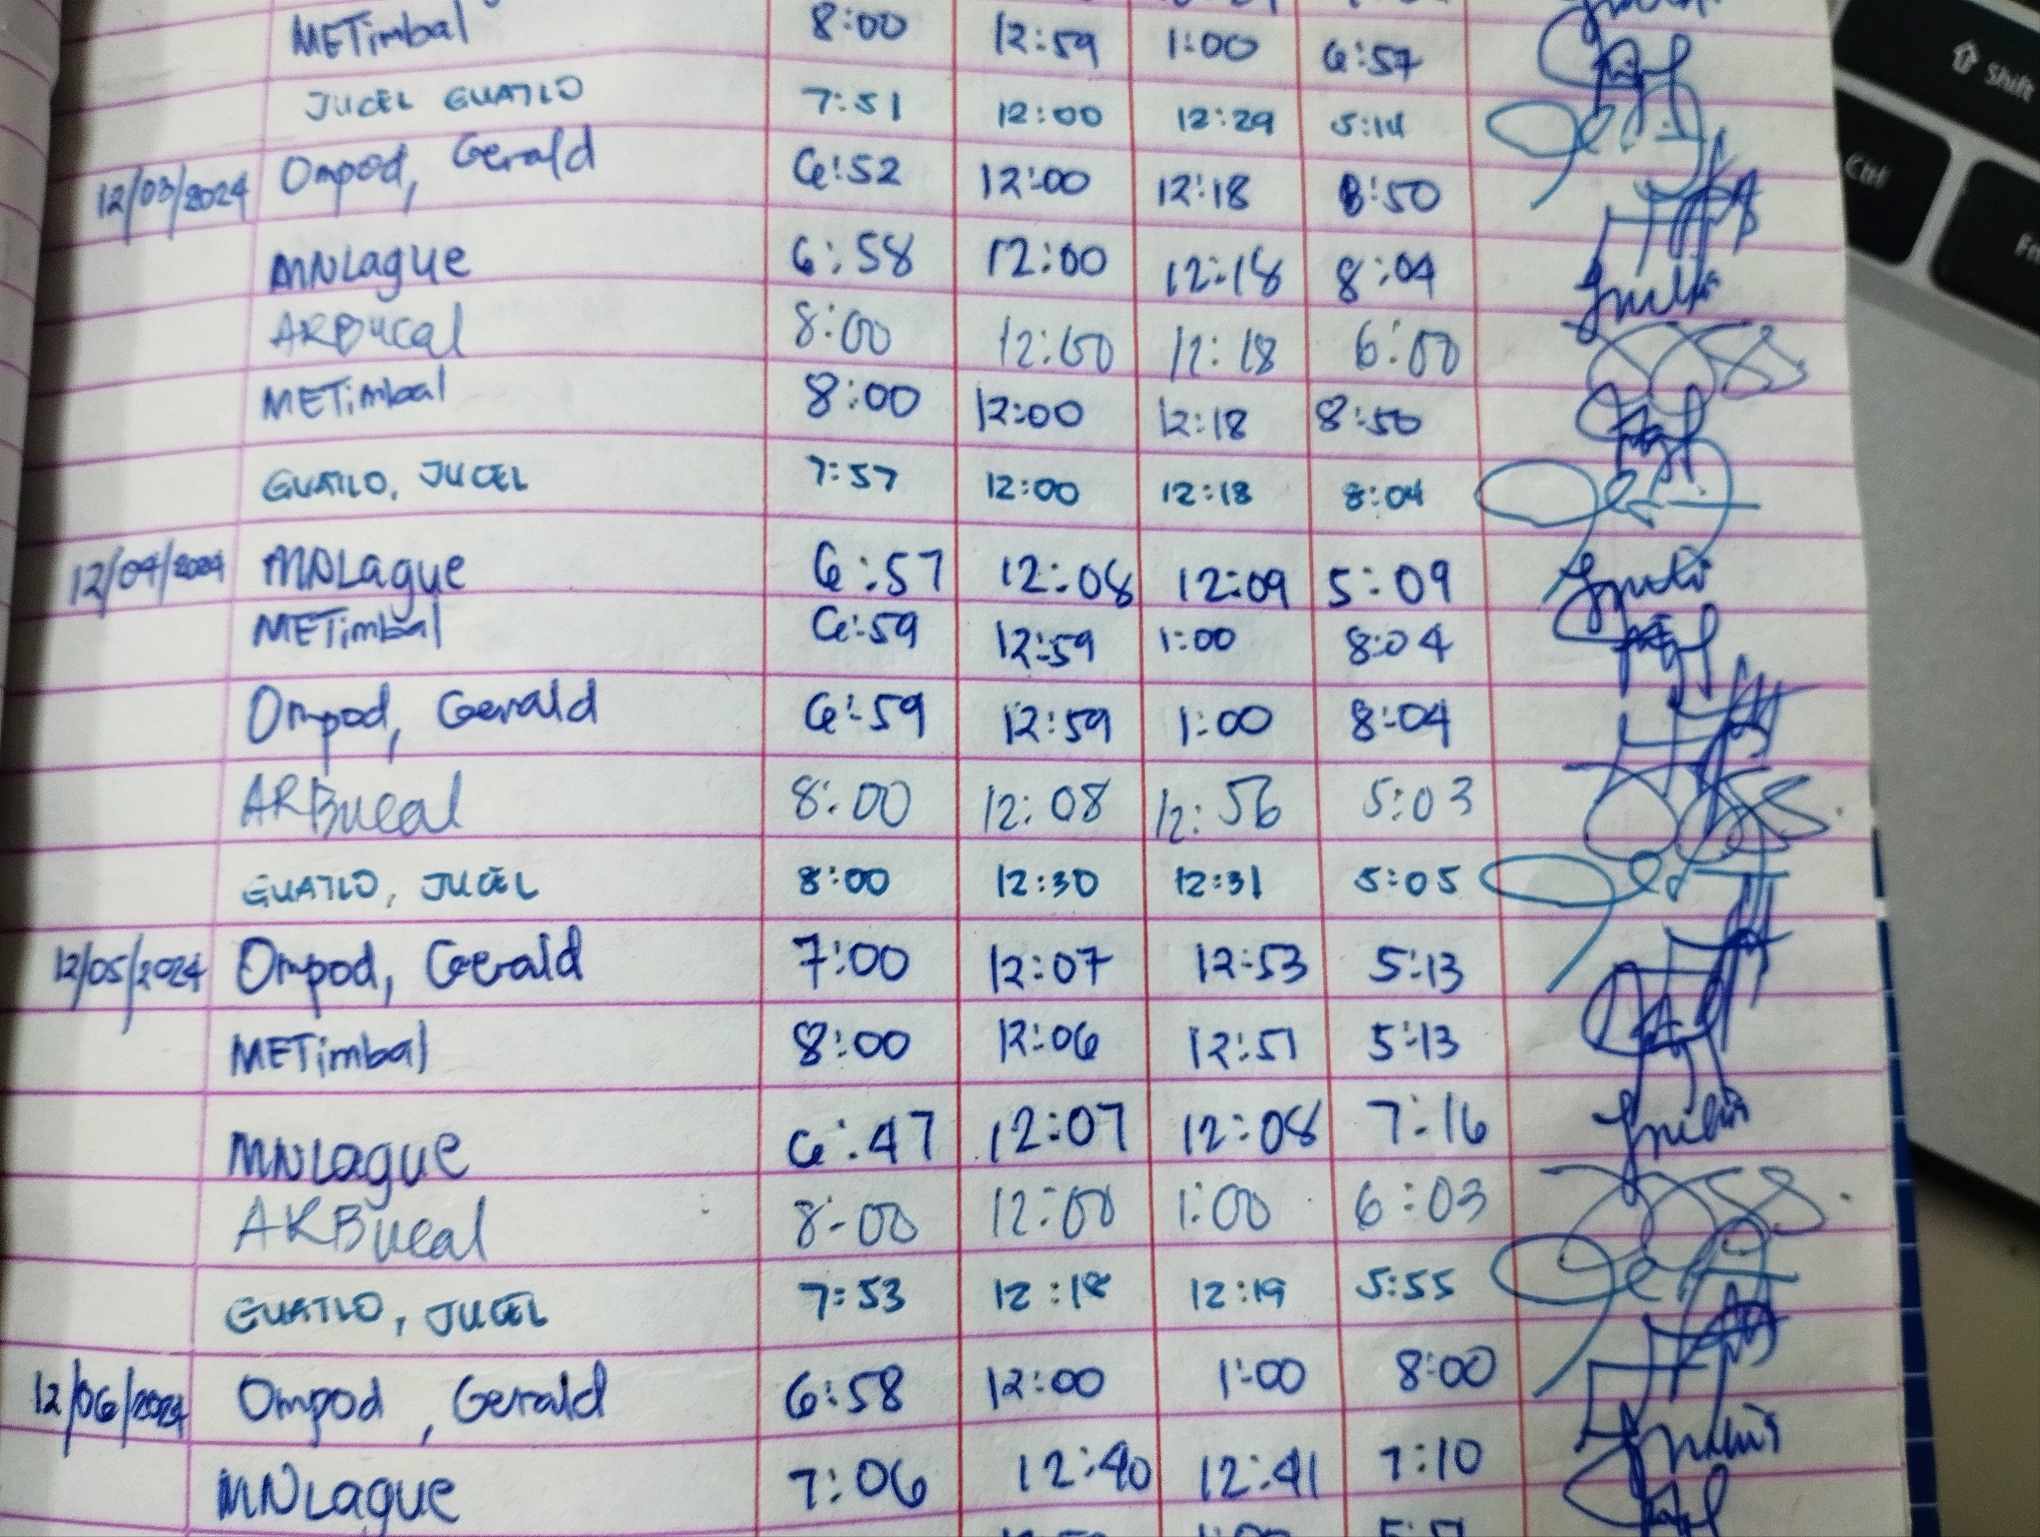 METimbal 8:00 12:59 1:00 6:57
JUCEL GUATLO 7:51 12:00 12:29 5:14
12/03/2024 Ompod, Gerald 6:52 12:00 12:18 8:50
MNLague 6:58 12:00 12:18 8:04
ARBucal 8:00 12:00 12:18 6:00
METimbal 8:00 12:00 12:18 8:50
GUATLO, JUCEL 7:57 12:00 12:18 8:04
12/04/2024 MNLague 6:57 12:08 12:09 5:09
METimbal 6:59 12:59 1:00 8:04
Ompod, Gerald 6:59 12:59 1:00 8:04
ARBucal 8:00 12:08 12:56 5:03
GUATLO, JUCEL 8:00 12:30 12:31 5:05
12/05/2024 Ompod, Gerald 7:00 12:07 12:53 5:13
METimbal 8:00 12:06 12:51 5:13
MNLague 6:47 12:07 12:08 7:16
ARBucal 8:00 12:00 1:00 6:03
GUATLO, JUCEL 7:53 12:18 12:19 5:55
12/06/2024 Ompod, Gerald 6:58 12:00 1:00 8:00
MNLague 7:06 12:40 12:41 7:10
Shift
Ctrl